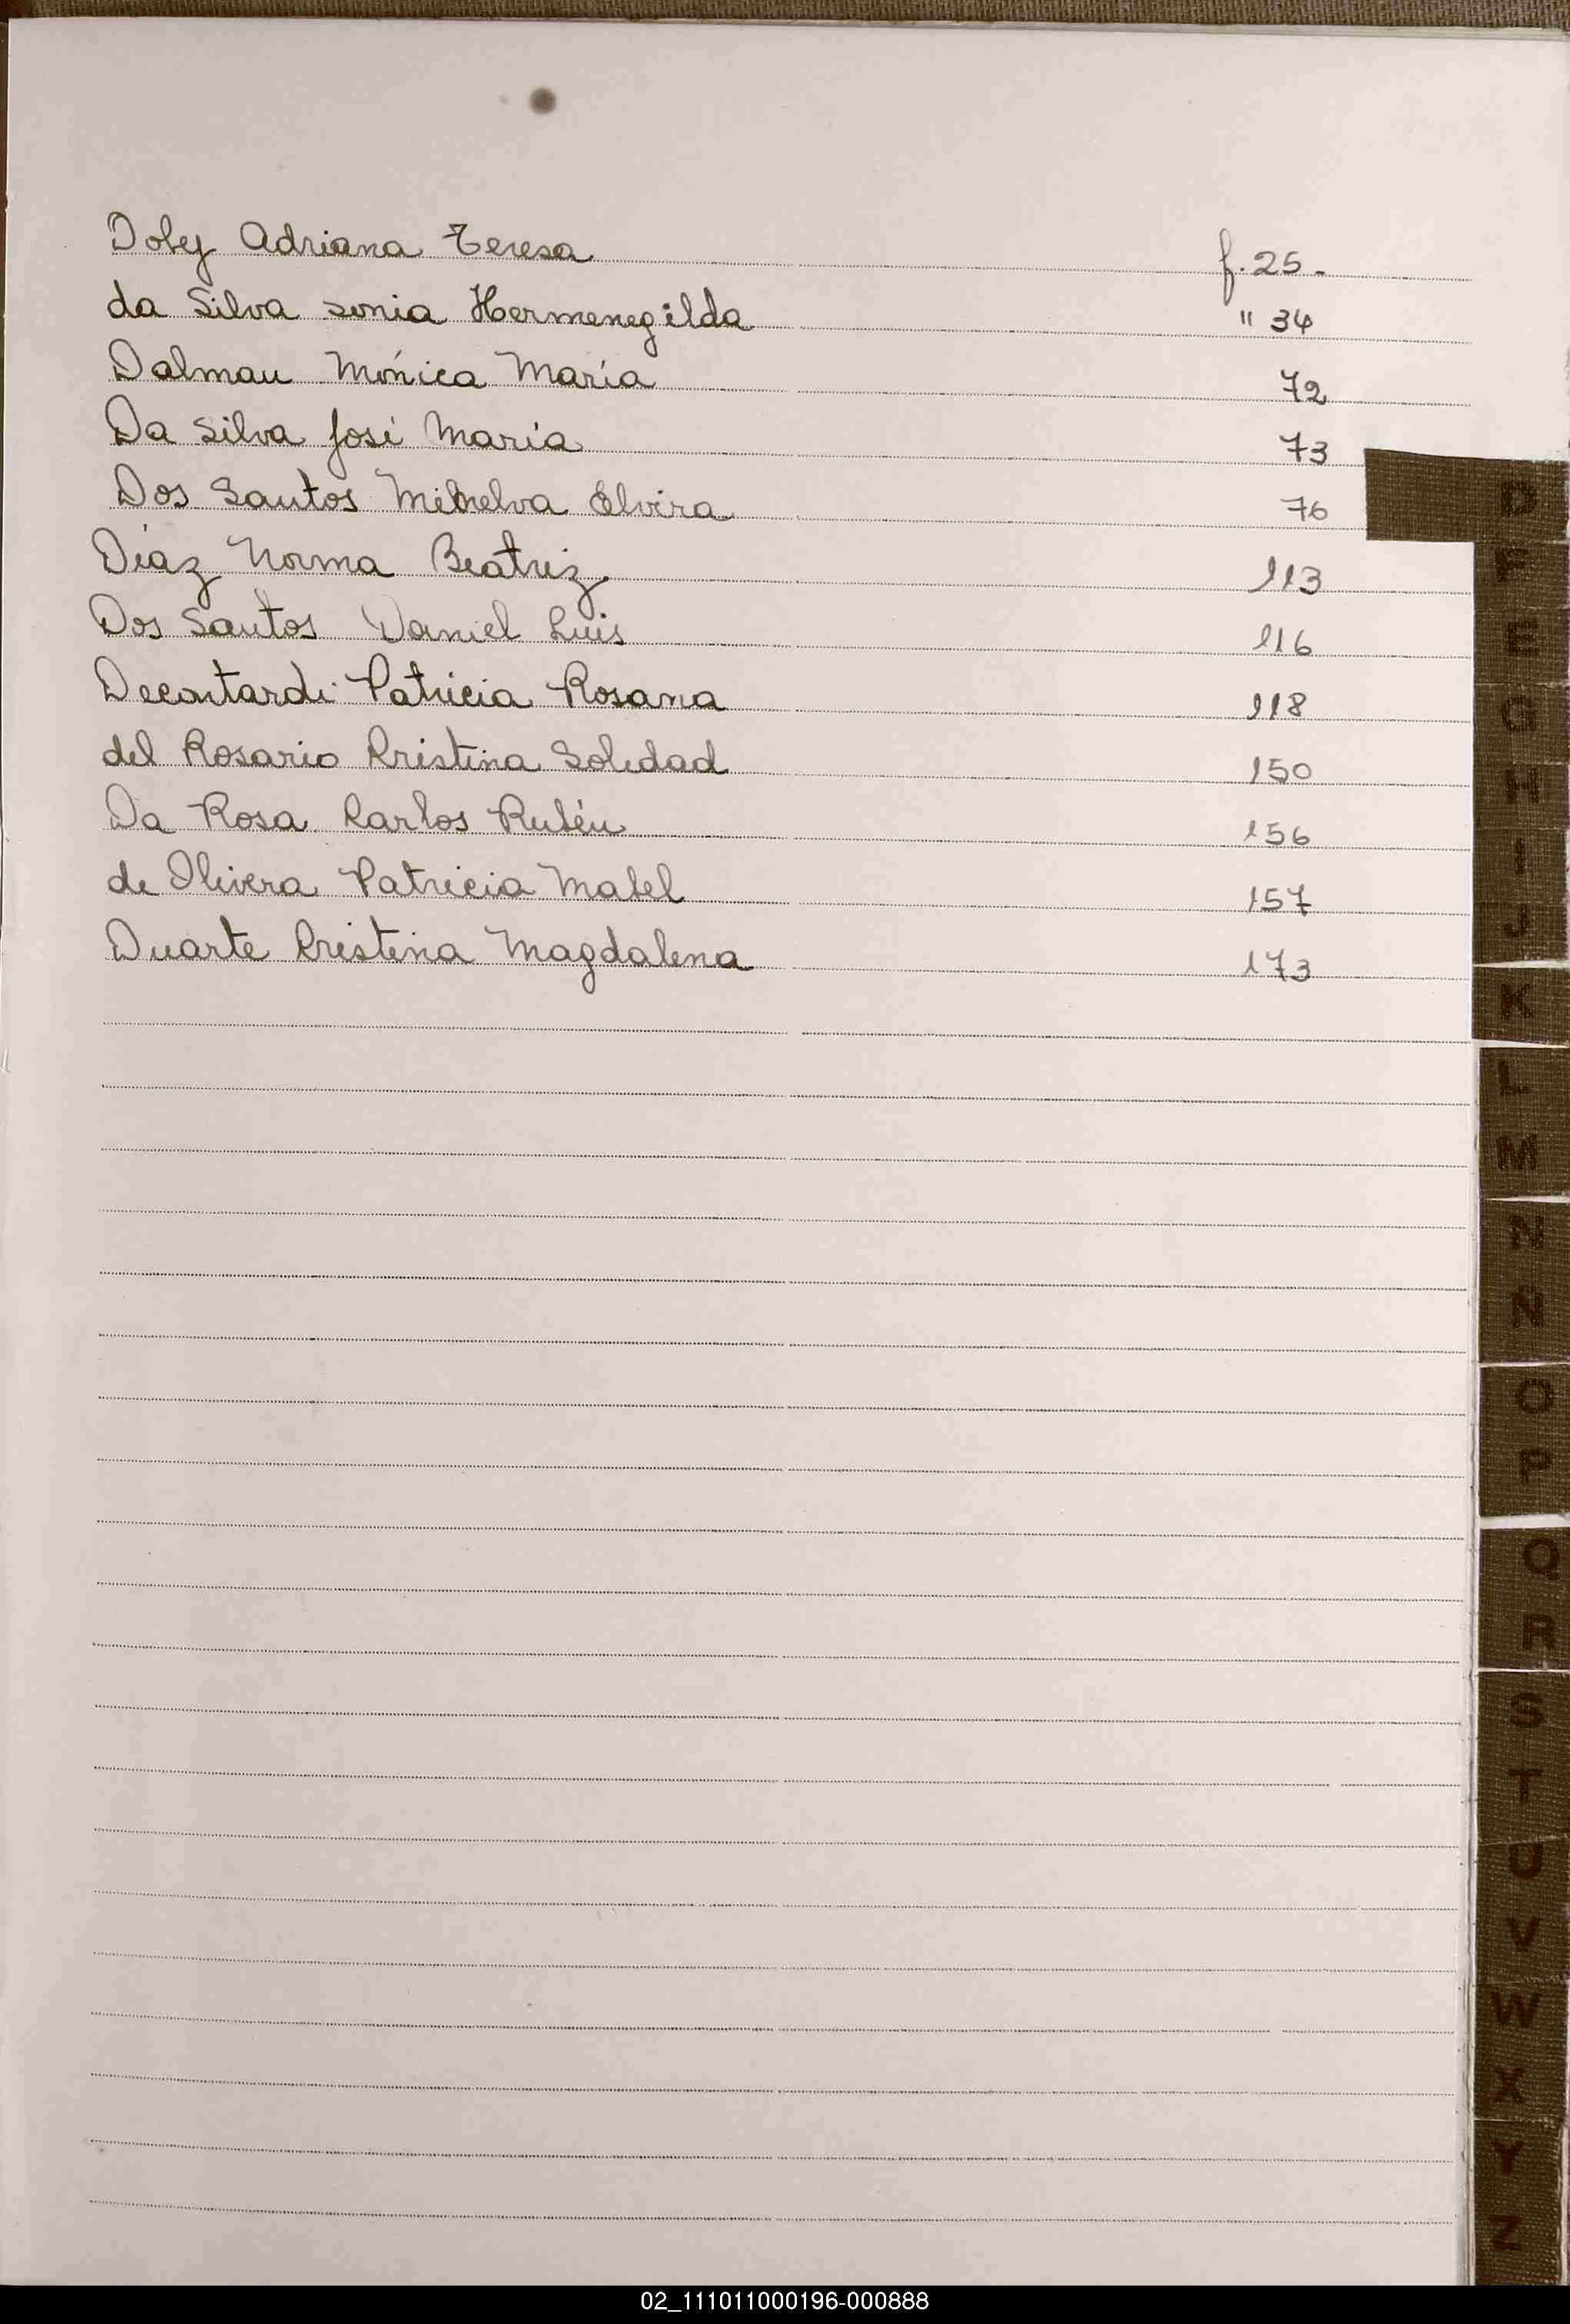 Doby Adriana Teresa f. 25.
da Silva Sonia Hermenegilda " 34
Dalmau Mónica María 72
Da Silva José María 73
Dos Santos Elvira 76
Díaz Norma Beatriz 113
Dos Santos Daniel Luis 116
Decontardi Patricia Rosana 118
del Rosario Cristina Soledad 150
Da Rosa Carlos Rubén 156
de Olivera Patricia Mabel 157
Duarte Cristina Magdalena 173
D
F
E
G
H
I
J
K
L
M
N
N
O
P
Q
R
S
T
U
V
W
X
Y
Z
02_111011000196-000888